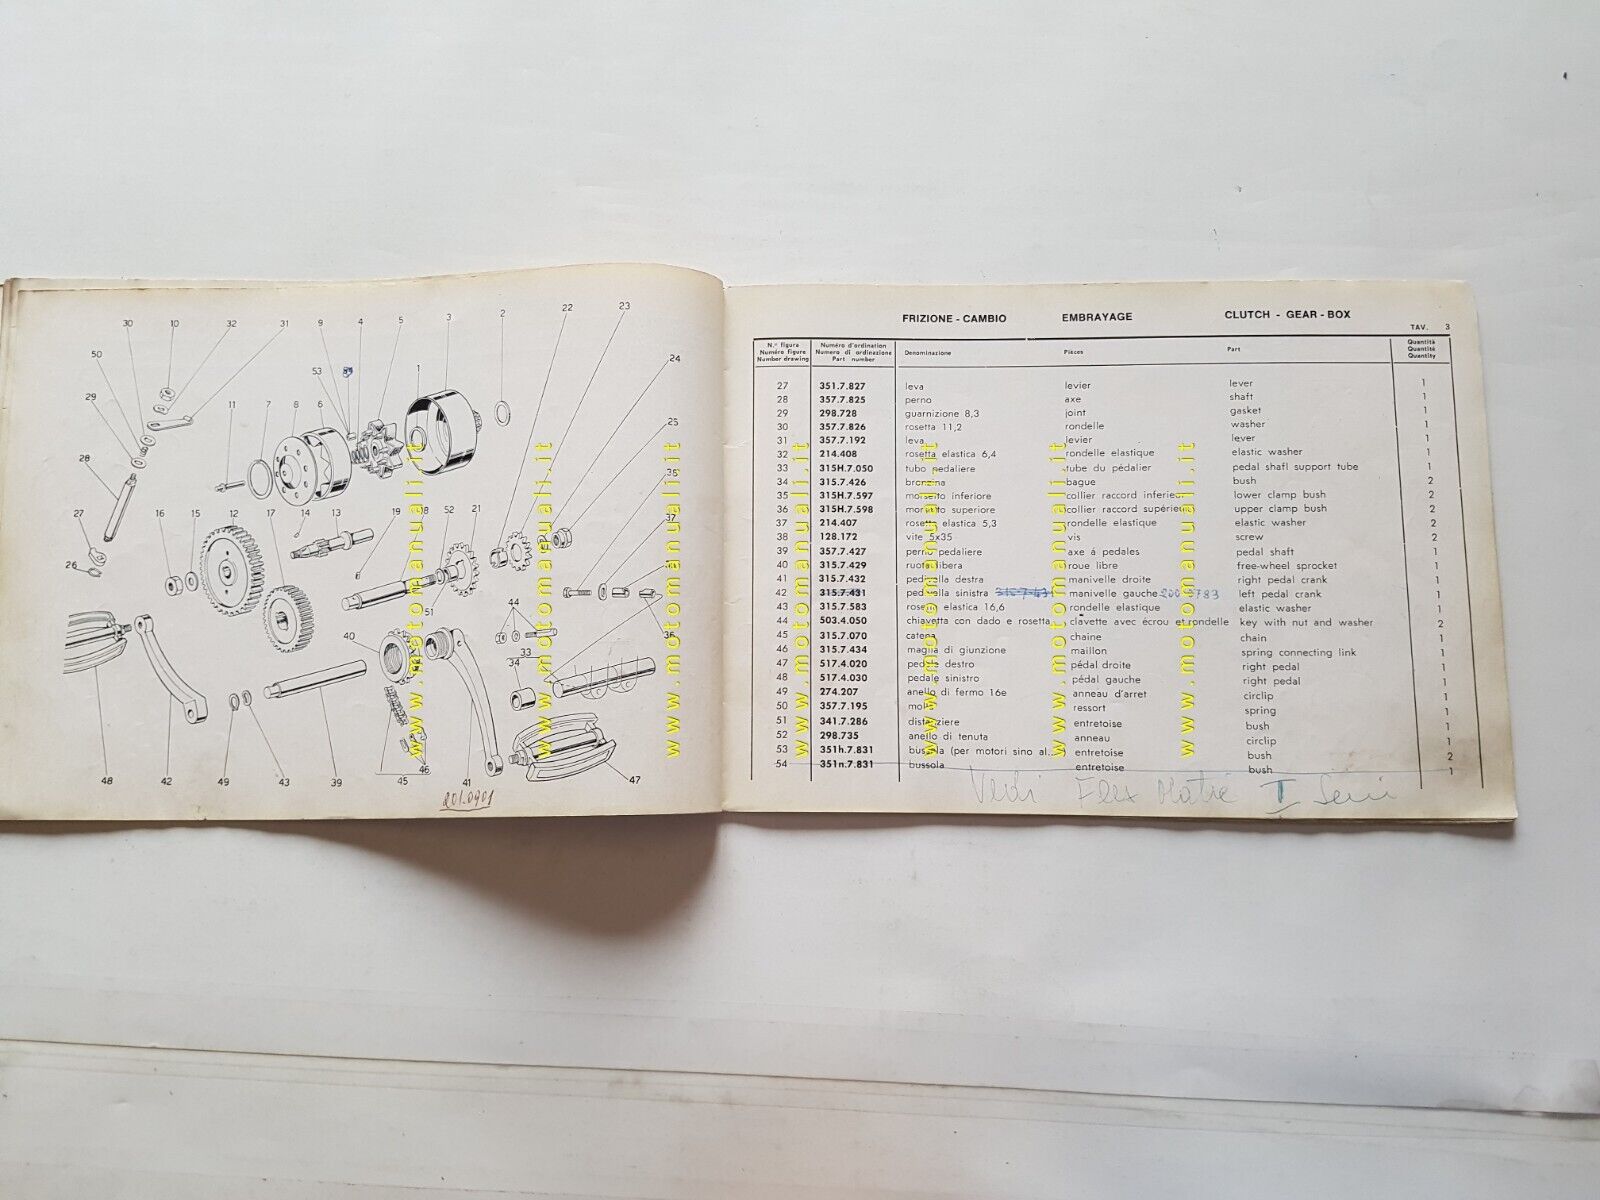 30 10 32 31 9 4 5 3 2 22 23
50 53 54 1 24
29 11 7 8 6 25
28
27 16 15 12 17 14 13 19 18 52 21
26 51
40 44 36
33
34
48 42 49 43 39 45 46 41 47
201.0901
www.motomanuali.it
www.motomanuali.it
www.motomanuali.it
FRIZIONE - CAMBIO EMBRAYAGE CLUTCH - GEAR - BOX
TAV. 3
N.° figura Numéro d'ordination Quantità
Numéro figure Numero di ordinazione Denominazione Pièces Part Quantité
Number drawing Part number Quantity
27 351.7.827 leva levier lever 1
28 357.7.825 perno axe shaft 1
29 298.728 guarnizione 8,3 joint gasket 1
30 357.7.826 rosetta 11,2 rondelle washer 1
31 357.7.192 leva levier lever 1
32 214.408 rosetta elastica 6,4 rondelle elastique elastic washer 1
33 315H.7.050 tubo pedaliere tube du pédalier pedal shafl support tube 1
34 315.7.426 bronzina bague bush 2
35 315H.7.597 morsetto inferiore collier raccord inferieur lower clamp bush 2
36 315H.7.598 morsetto superiore collier raccord supérieur upper clamp bush 2
37 214.407 rosetta elastica 5,3 rondelle elastique elastic washer 2
38 128.172 vite 5x35 vis screw 2
39 357.7.427 perno pedaliere axe á pedales pedal shaft 1
40 315.7.429 ruota libera roue libre free-wheel sprocket 1
41 315.7.432 pedivella destra manivelle droite right pedal crank 1
42 315.7.431 pedivella sinistra manivelle gauche left pedal crank 1
43 315.7.583 rosetta elastica 16,6 rondelle elastique elastic washer 1
44 503.4.050 chiavetta con dado e rosetta clavette avec écrou et rondelle key with nut and washer 2
45 315.7.070 catena chaine chain 1
46 315.7.434 maglia di giunzione maillon spring connecting link 1
47 517.4.020 pedale destro pédal droite right pedal 1
48 517.4.030 pedale sinistro pédal gauche right pedal 1
49 274.207 anello di fermo 16e anneau d'arret circlip 1
50 357.7.195 molla ressort spring 1
51 341.7.286 distanziere entretoise bush 1
52 298.735 anello di tenuta anneau circlip 1
53 351h.7.831 bussola (per motori sino al... entretoise bush 2
54 351n.7.831 bussola entretoise bush 1
Vedi Flex Matic II Serie
www.motomanuali.it
www.motomanuali.it
www.motomanuali.it
www.motomanuali.it